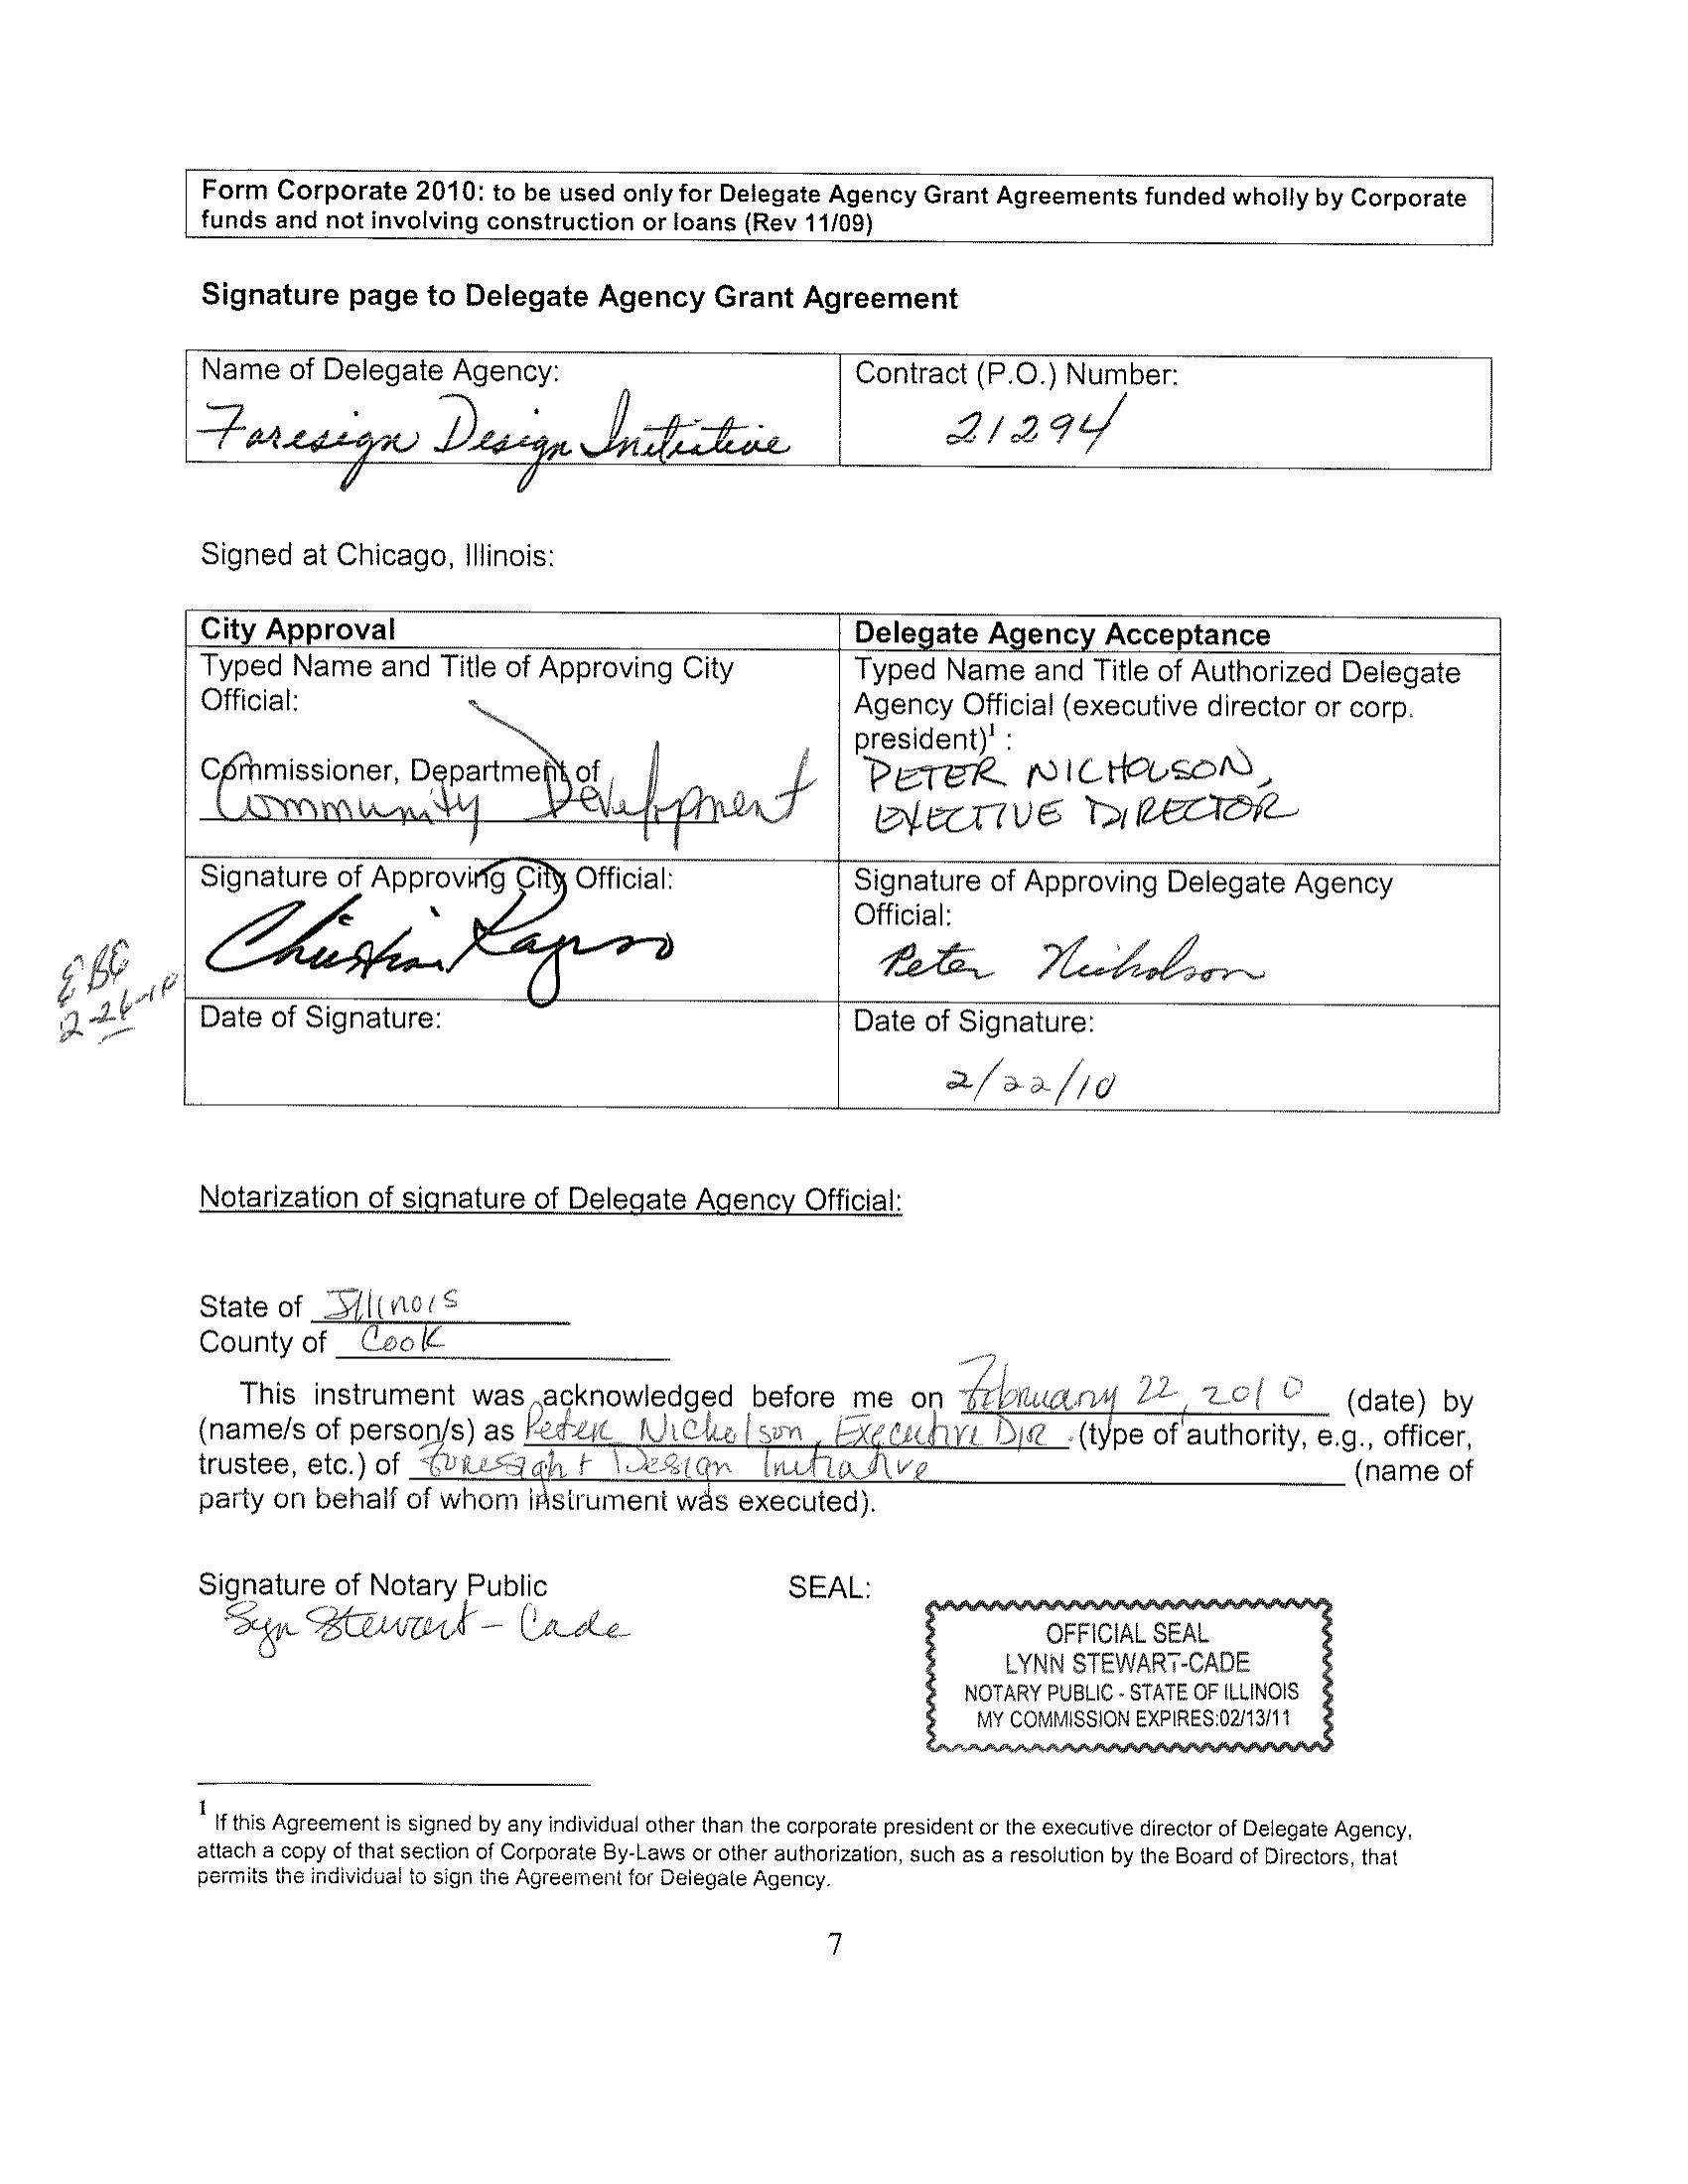 Form Corporate 2010: to be used only for Delegate Agency Grant Agreements funded wholly by Corporate
funds and not involving construction or loans (Rev 11/09)
Signature page to Delegate Agency Grant Agreement
Name of Delegate Agency:
Foresign Design Initiative
Contract (P.O.) Number:
21294
Signed at Chicago, Illinois:
City Approval
Typed Name and Title of Approving City
Official:
Commissioner, Department of
Community Development
Signature of Approving City Official:
Date of Signature:
Delegate Agency Acceptance
Typed Name and Title of Authorized Delegate
Agency Official (executive director or corp.
president)1 :
PETER NICHOLSON,
EXECTIVE DIRECTOR
Signature of Approving Delegate Agency
Official:
Peter Nicholson
Date of Signature:
2/22/10
2-26-10
Notarization of signature of Delegate Agency Official:
State of Illinois
County of Cook
This instrument was acknowledged before me on February 22, 2010 (date) by
(name/s of person/s) as Peter Nicholson, Executive Dir. (type of authority, e.g., officer,
trustee, etc.) of Foresight Design Initiative (name of
party on behalf of whom instrument was executed).
Signature of Notary Public
Lynn Stewart-Cade
SEAL:
OFFICIAL SEAL
LYNN STEWART-CADE
NOTARY PUBLIC - STATE OF ILLINOIS
MY COMMISSION EXPIRES:02/13/11
1 If this Agreement is signed by any individual other than the corporate president or the executive director of Delegate Agency,
attach a copy of that section of Corporate By-Laws or other authorization, such as a resolution by the Board of Directors, that
permits the individual to sign the Agreement for Delegate Agency.
7